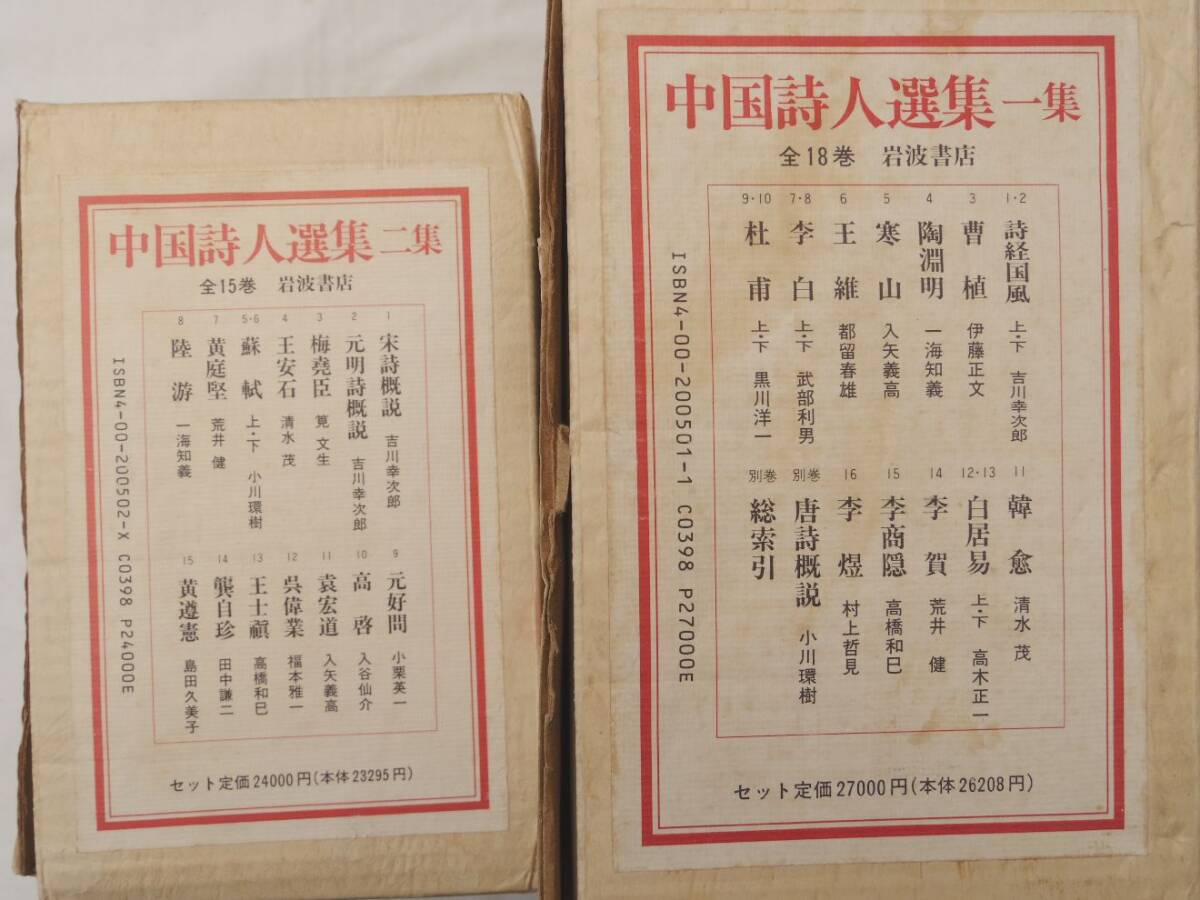 中国詩人選集 二集
全15巻 岩波書店
1 宋詩概説 吉川幸次郎
2 元明詩概説 吉川幸次郎
3 梅堯臣 筧 文生
4 王安石 清水 茂
5・6 蘇軾 上・下 小川環樹
7 黄庭堅 荒井 健
8 陸游 一海知義
9 元好問 小栗英一
10 高啓 入谷仙介
11 袁宏道 入矢義高
12 呉偉業 福本雅一
13 王士禛 高橋和巳
14 龔自珍 田中謙二
15 黄遵憲 島田久美子
ISBN4-00-200502-X C0398 P24000E
セット定価24000円(本体23295円)
中国詩人選集 一集
全18巻 岩波書店
1・2 詩経国風 上・下 吉川幸次郎
3 曹植 伊藤正文
4 陶淵明 一海知義
5 寒山 入矢義高
6 王維 都留春雄
7・8 李白 上・下 武部利男
9・10 杜甫 上・下 黒川洋一
11 韓愈 清水 茂
12・13 白居易 上・下 高木正一
14 李賀 荒井 健
15 李商隠 高橋和巳
16 李煜 村上哲見
別巻 唐詩概説 小川環樹
別巻 総索引
ISBN4-00-200501-1 C0398 P27000E
セット定価27000円(本体26208円)